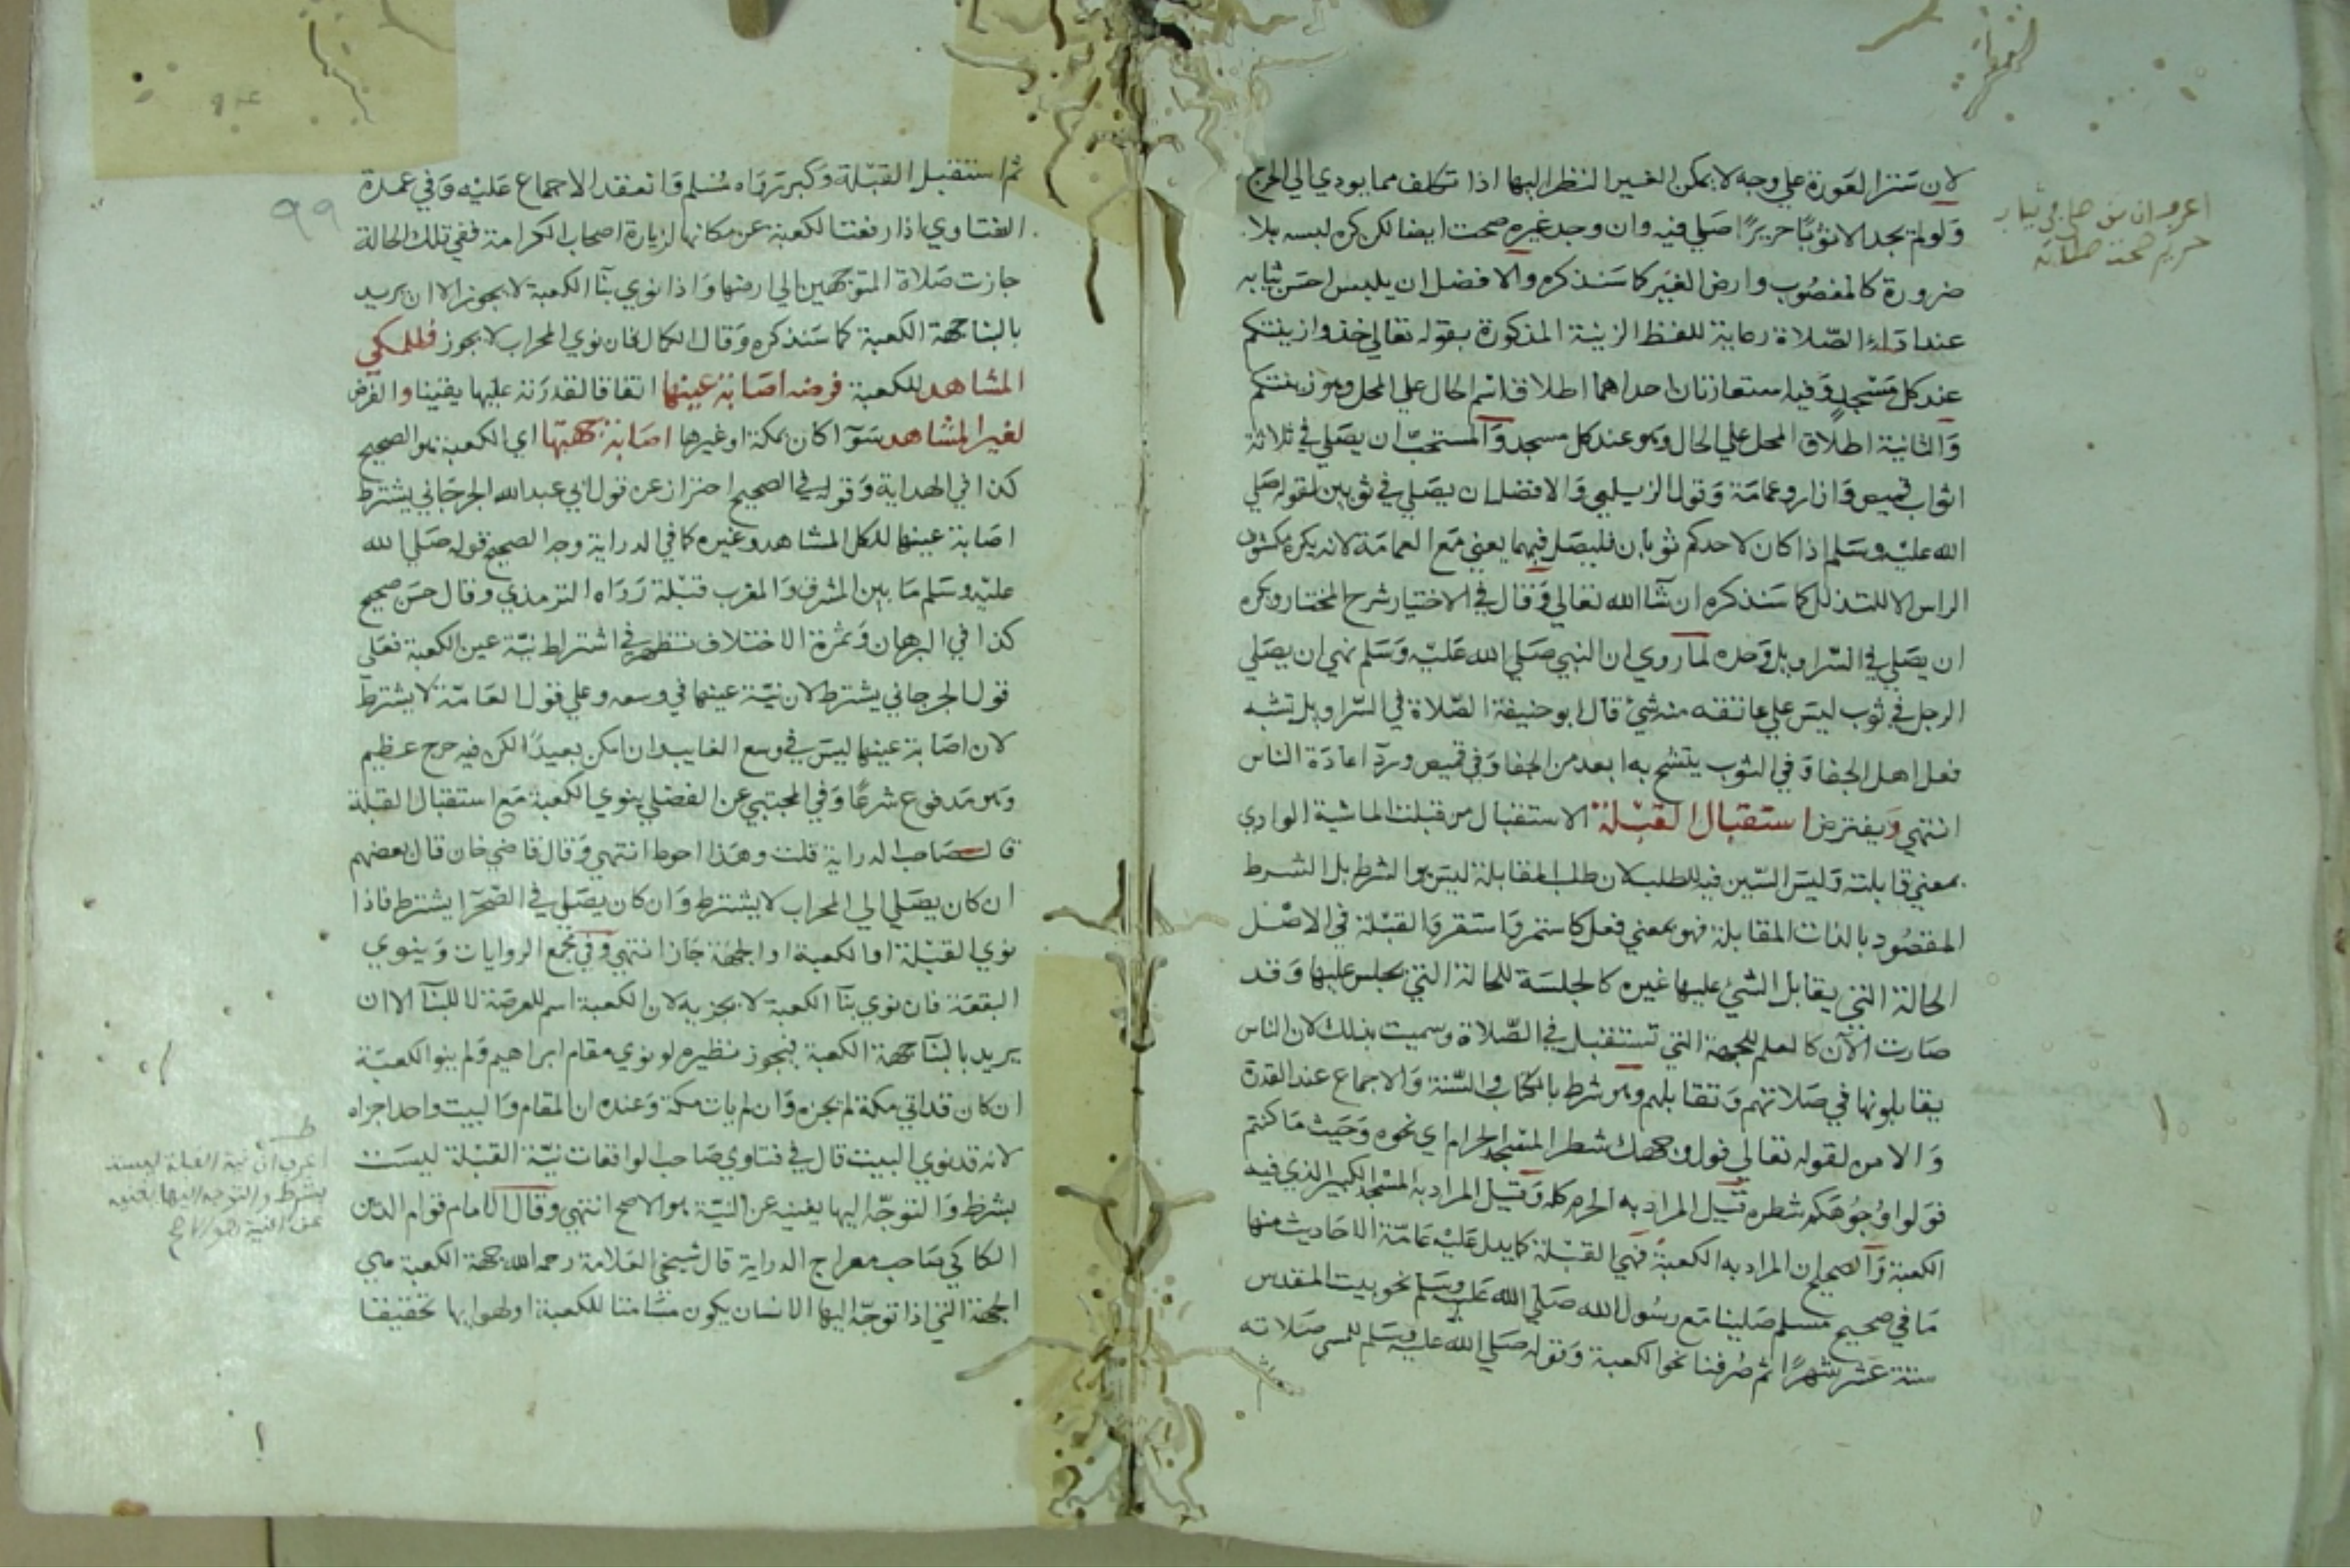 لان ستر العورة علي وجه لا يمكن الغير النظر اليها اذا تكلف مما يودي الي الحرج
ولو لم يجد الا ثوبًا حريرًا صلي فيه وان وجد غيره صحت ايضا لكن كره لبسه بلا
ضرورة كالمغصوب وارض الغير كما سنذكره والافضل ان يلبس احسن ثيابه
عند اداء الصلاة رعاية للفظ الزينة المذكورة بقوله تعالي خذوا زينتكم
عند كل مسجد وفيه استعارتان احداهما اطلاق اسم الحال علي المحل وهو زينتكم
والثانية اطلاق المحل علي الحال وهو عند كل مسجد والمستحب ان يصلي في ثلاثة
اثواب قميص وازار وعمامة وقول الزيلعي والافضل ان يصلي في ثوبين لقوله صلي
الله عليه وسلم اذا كان لاحدكم ثوبان فليصل فيهما يعني مع العمامة لانه يكره مكشوف
الراس الا للتذلل كما سنذكره ان شا الله تعالي وقال في الاختيار شرح المختار ويكره
ان يصلي في السراويل وحده لما روي ان النبي صلي الله عليه وسلم نهي ان يصلي
الرجل في ثوب ليس علي عاتقه منه شئ قال ابو حنيفة الصلاة في السراويل تشبه
فعل اهل الجفا وفي الثوب يتشح به ابعد من الجفا وفي قميص وردآ عادة الناس
انتهي ويفترض استقبال القبلة الاستقبال من قبلت الماشية الوادي
بمعني قابلته وليس السين فيه للطلب لان طلب المقابلة ليس هو الشرط بل الشرط
المقصود بالذات المقابلة فهو بمعني فعل كاستمر واستقر والقبلة في الاصل
الحالة التي يقابل الشئ عليها غيره كالجلسة للحالة التي يجلس عليها وقد
صارت الآن كالعلم للجهة التي تستقبل في الصلاة وسميت بذلك لان الناس
يقابلونها في صلاتهم وتقابلهم وهو شرط بالكتاب والسنة والاجماع عند القدرة
والامن لقوله تعالي فول وجهك شطر المسجد الحرام اي نحوه وحيث ما كنتم
فولوا وجوهكم شطره قيل المراد به الحرم كله وقيل المراد به المسجد الكبير الذي فيه
الكعبة والصحيح ان المراد به الكعبة فهي القبلة كما يدل عليه عامة الاحاديث منها
ما في صحيح مسلم صلينا مع رسول الله صلي الله عليه وسلم نحو بيت المقدس
ستة عشر شهرًا ثم صرفنا نحو الكعبة وقوله صلي الله عليه وسلم للمسي صلاته
حرير صحت صلاته
٩٩
ثم استقبل القبلة وكبر رواه مسلم وانعقد الاجماع عليه وفي عمدة
الفتاوي اذا رفعت الكعبة عن مكانها لزيارة اصحاب الكرامة ففي تلك الحالة
جازت صلاة المتوجهين الي ارضها واذا نوي بنآ الكعبة لا يجوز الا ان يريد
بالبنا جهة الكعبة كما سنذكره وقال الكمال فان نوي المحراب لا يجوز فللمكي
المشاهد للكعبة فرضه اصابة عينها اتفاقا لقدرته عليها يقينا والفرض
لغير المشاهد سوآ كان بمكة او غيرها اصابة جهتها اي الكعبة هو الصحيح
كذا في الهداية وقوله في الصحيح احتراز عن قول ابي عبد الله الجرجاني يشترط
اصابة عينها للكل المشاهد وغيره كما في الدراية وجه الصحيح قوله صلي الله
عليه وسلم ما بين المشرق والمغرب قبلة رواه الترمذي وقال حسن صحيح
كذا في البرهان وثمرة الاختلاف تظهر في اشتراط نية عين الكعبة فعلي
قول الجرجاني يشترط لان نية عينها في وسعه وعلي قول العامة لا يشترط
لان اصابة عينها ليس في وسع الغايب وان امكن بعيدًا لكن فيه حرج عظيم
وهو مدفوع شرعًا وفي المجتبي عن الفضلي ينوي الكعبة مع استقبال القبلة
قال صاحب الدراية قلت وهذا احوط انتهي وقال قاضي خان قال بعضهم
ان كان يصلي الي المحراب لا يشترط وان كان يصلي في الصحرآ يشترط فاذا
نوي القبلة او الكعبة او الجهة جاز انتهي وفي مجمع الروايات وينوي
البقعة فان نوي بنآ الكعبة لا يجزيه لان الكعبة اسم للعرصة لا للبنآ الا ان
يريد بالبنآ جهة الكعبة فيجوز نظيره لو نوي مقام ابراهيم ولم ينو الكعبة
ان كان قد اتي مكة لم يجزه وان لم يات مكة وعنده ان المقام والبيت واحد اجزاه
لانه قد نوي البيت قال في فتاوي صاحب الواقعات نية القبلة ليست
بشرط والتوجه اليها يغنيه عن النية هو الاصح انتهي وقال الامام قوام الدين
الكاكي صاحب معراج الدراية قال شيخي العلامة رحمه الله جهة الكعبة هي
الجهة التي اذا توجه اليها الانسان يكون مسامتا للكعبة او لهوايها تحقيقا
اعرف ان نية القبلة ليست
بشرط والتوجه اليها يغنيه
عن النية هو الاصح